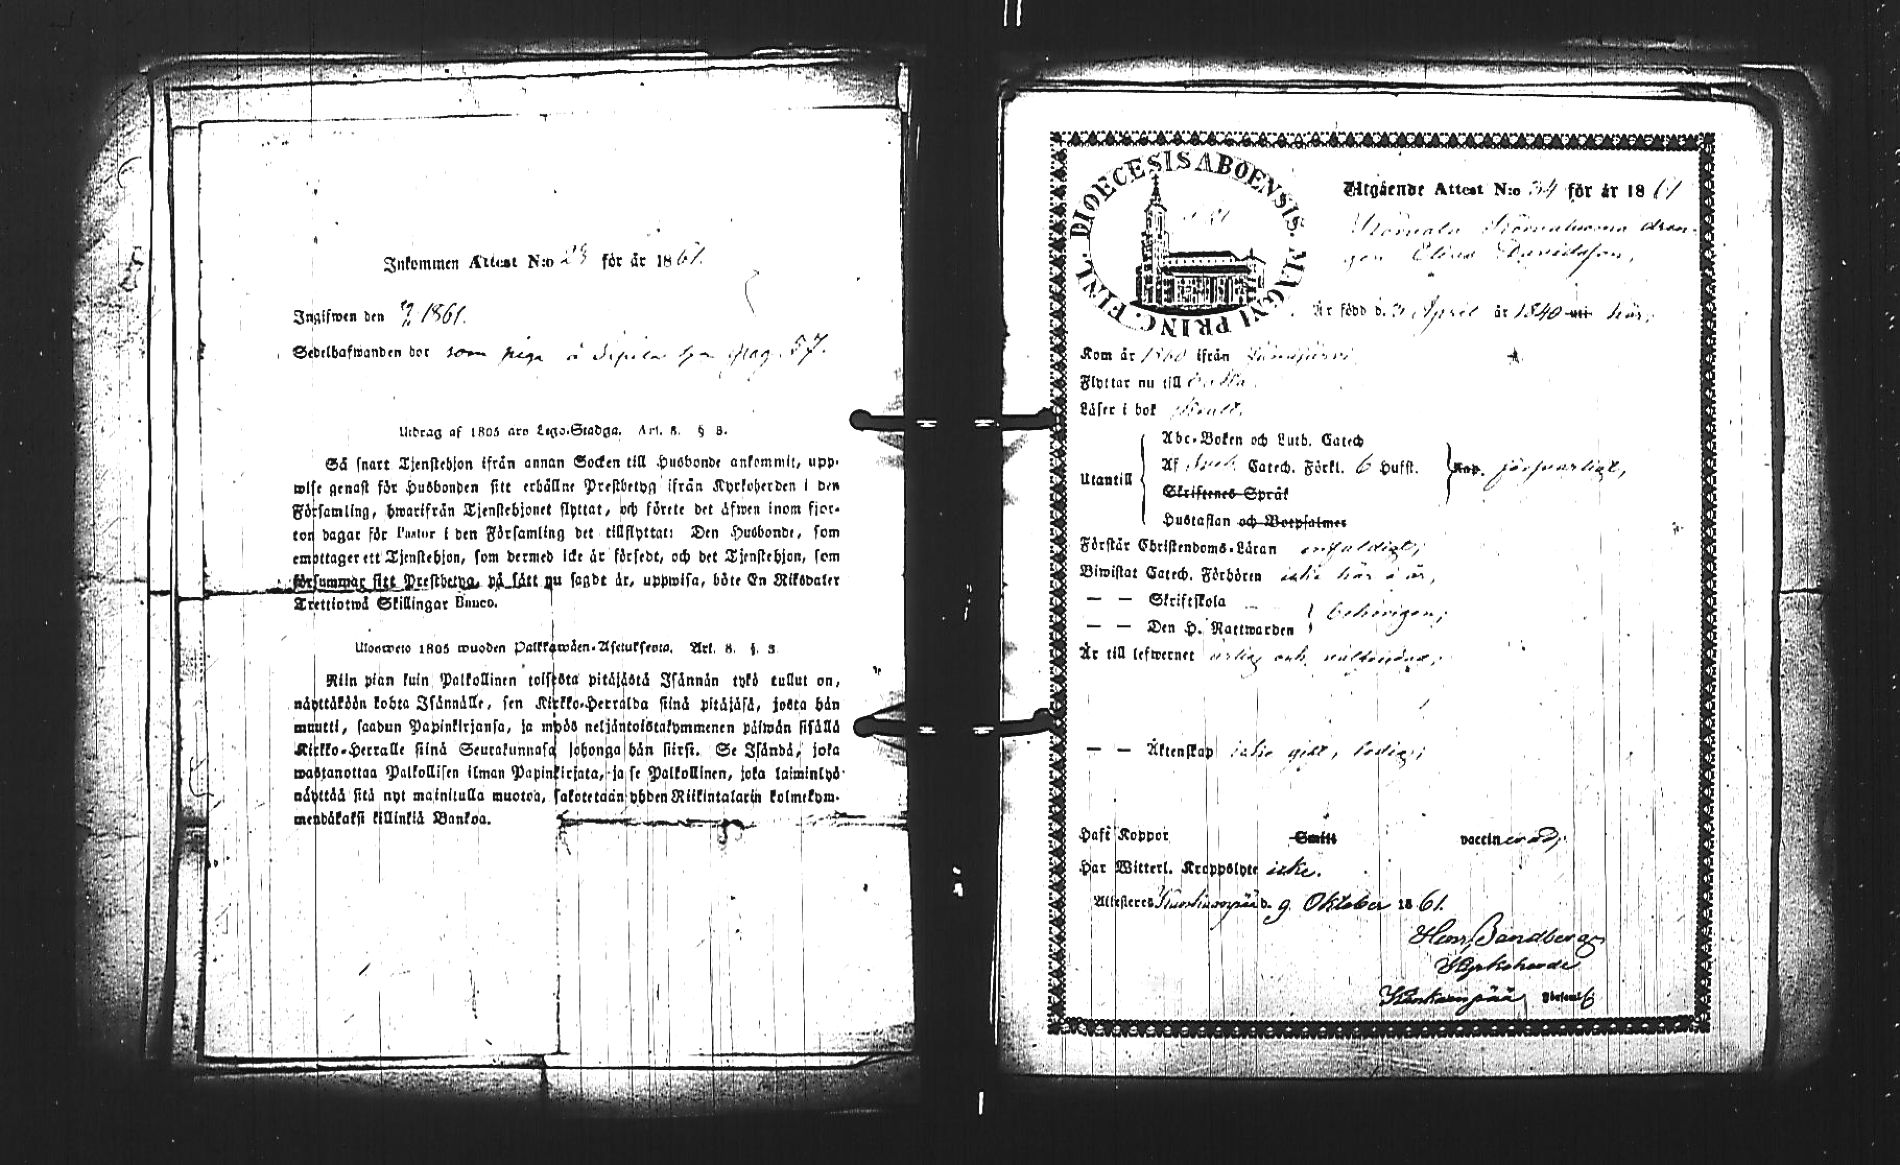 Inkommen Attest N:o 23 för år 1861.
Ingifwen den 1861.
Sedelhafwanden bor som piga å pag. 57.
Utdrag af 1805 års Lego-Stadga. Art. 8. § 3.
Så snart Tjenstehjon ifrån annan Socken till Husbonde ankommit, upp-
wise genast för Husbonden sitt erhållne Prestbetyg ifrån Kyrkoherden i den
Församling, hwarifrån Tjenstehjonet flyttat, och förete det äfwen inom fjor-
ton dagar för Pastor i den Församling det tillflyttat: Den Husbonde, som
emottager ett Tjenstehjon, som dermed icke är försedt, och det Tjenstehjon, som
försummar sitt Prestbetyg, på sätt nu sagdt är, uppwisa, böte En Riksdaler
Trettiotwå Skillingar Banco.
Ulosweto 1805 wuoden Palkkawäen-Asetuksesta. Art. 8. §. 3
Niin pian kuin Palkollinen toisesta pitäjästä Isännän tykö tullut on,
näyttäkään kohta Isännälle, sen Kirkko-Herralda siinä pitäjäsä, josta hän
muutti, saadun Papinkirjansa, ja myös neljäntoistakymmenen päiwän sisällä
Kirkko-Herralle siinä Seurakunnasa johonga hän siirsi. Se Isändä, joka
wastanottaa Palkollisen ilman Papinkirjata, ja se Palkollinen, joka laiminlyö
näyttää sitä nyt mainitulla muotoa, sakotetaan yhden Riikintalarin kolmekym-
mendäkaksi killinkiä Bankoa.
DIOECESIS ABOENSIS. MAGNI PRINC. FINL.
Utgående Attest N:o 34 för år 1861
dren-
gen Elias Davidsson,
Är född d. 3 April år 1840 uti här,
Kom år 1860 ifrån
Flyttar nu till
Läser i bok
Utantill
Abc-Boken och Luth. Catech
Af Sveb. Catech. Förkl. 6 Hufst.
Skriftenes Språk
Hustaflan och Botpsalmer
Kap. försvarligt,
Förstår Christendoms-Läran enfaldigt,
Biwistat Catech. Förhören icke här i år,
— — Skriftskola
— — Den H. Nattwarden
behörigen,
Är till lefwernet ärlig och
— — Äktenskap icke gift, ledig;
Haft Koppor Smitt vaccinerad,
Har Witterl. Kroppslyte icke.
Attesteres Kankaanpää d. 9 Oktober 1861.
Henr. Sandberg
Kyrkoherde
Kankaanpää